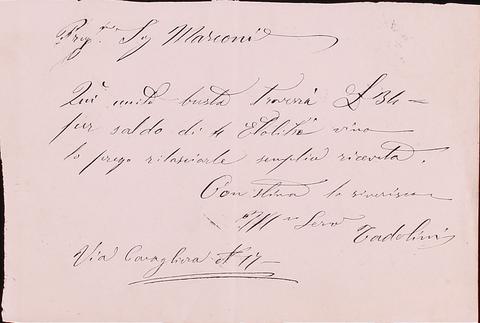 Preg.mo Sig Marconi
Qui unito busta troverà £ 34 =
per saldo di 4 Etolitri vino
lo prego rilasciarle semplice ricevuta.
Con stima lo riverisco
Servo
Tadolini
Via Cavaliera N° 17 =